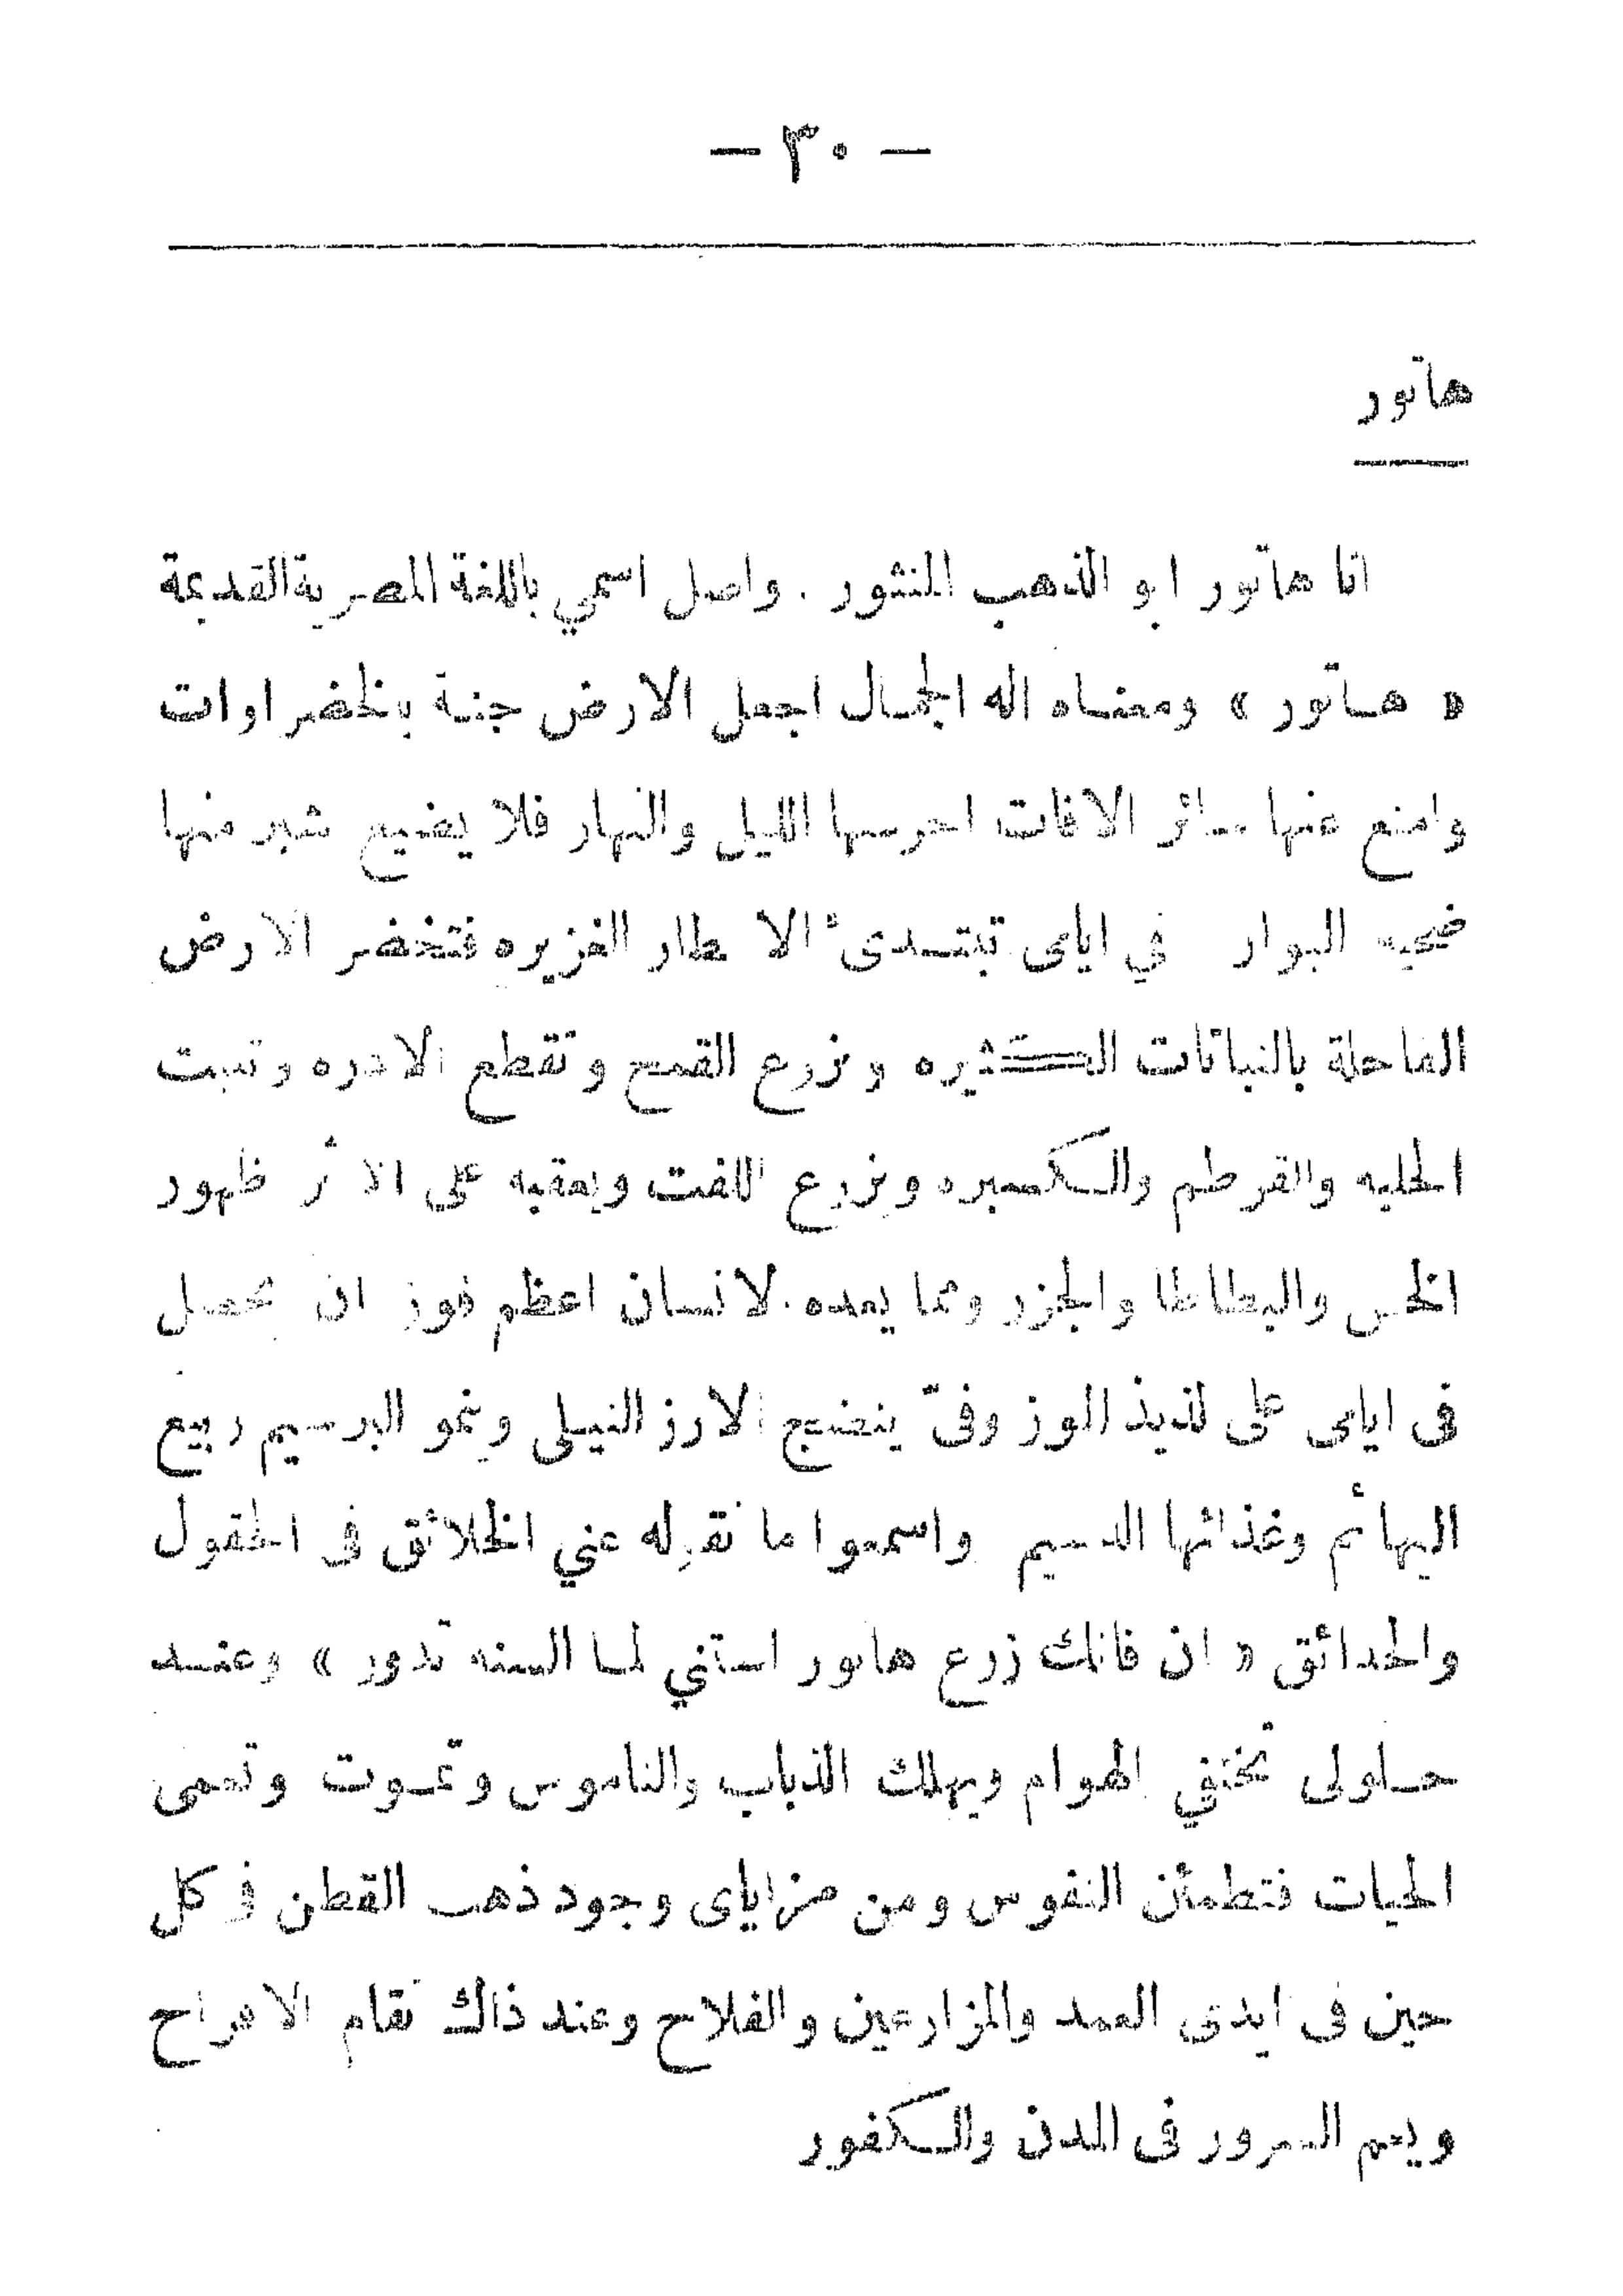 — ٣٠ —
هاتور
انا هاتور ابو الذهب المنثور . واصل اسمي باللغة المصرية القديمة
« هاتور » ومعناه اله الجمال اجعل الارض جنة بالخضراوات
وامنع عنها سائر الافات احرسها الليل والنهار فلا يضيع شبر منها
ضحيه البوار في ايامى تبتدىء الامطار الغزيره فتخضر الارض
القاحلة بالنباتات الكثيره ونزرع القمح وتقطع الادره وتنبت
الحلبه والقرطم والكسبره ونزرع اللفت ويعقبه على الاثر ظهور
الخس والبطاطا والجزر ومما يعده الانسان اعظم فوز ان يحصل
فى ايامى على لذيذ الموز وفىّ ينضج الارز النيلى وينمو البرسيم ربيع
البهائم وغذائها الدسيم واسمعوا ما تقوله عني الخلائق فى الحقول
والحدائق « ان فاتك زرع هاتور استني لما السنه تدور » وعند
حلولى تختفي الهوام ويهلك الذباب والناموس وتموت وتعمى
الحيات فتطمئن النفوس ومن مزاياى وجود ذهب القطن فى كل
حين فى ايدى العمد والمزارعين والفلاح وعند ذاك تقام الافراح
ويعم السرور فى المدن والكفور